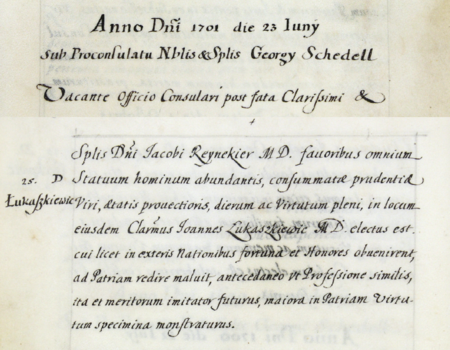 Anno Dn̄i 1701 die 23 Iuny
Sub Proconsulatu Nblis & Splis Georgy Schedell
Vacante Officio Consulari post fata Clarissimi &
Splis Dn̄i Iacobi Reynekier M D. fauoribus omnium
25. D Statuum hominum abundantis, consummatæ prudentiæ
Łukaszkiewic Viri, ætatis prouectioris, dierum ac Virtutum pleni, in locum
eiusdem Clarm̄us Ioannes Łukaszkiewic M D. electus est.
cui licet in exteris Nationibus fortuna et Honores obuenirent,
ad Patriam redire maluit, antecedaneo vt Professione similis,
ita et meritorum imitator futurus, maiora in Patriam Virtu-
tum specimina monstraturus.